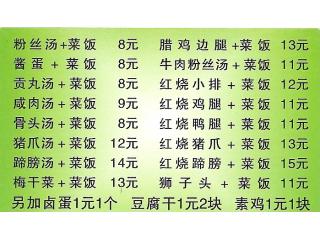 粉丝汤+菜饭 8元 腊鸡边腿+菜饭 13元
酱蛋+菜饭 8元 牛肉粉丝汤+菜饭 11元
贡丸汤+菜饭 8元 红烧小排+菜饭 12元
咸肉汤+菜饭 9元 红烧鸡腿+菜饭 11元
骨头汤+菜饭 8元 红烧鸭腿+菜饭 11元
猪爪汤+菜饭 12元 红烧猪爪+菜饭 13元
蹄膀汤+菜饭 14元 红烧蹄膀+菜饭 15元
梅干菜+菜饭 13元 狮子头+菜饭 11元
另加卤蛋1元1个 豆腐干1元2块 素鸡1元1块